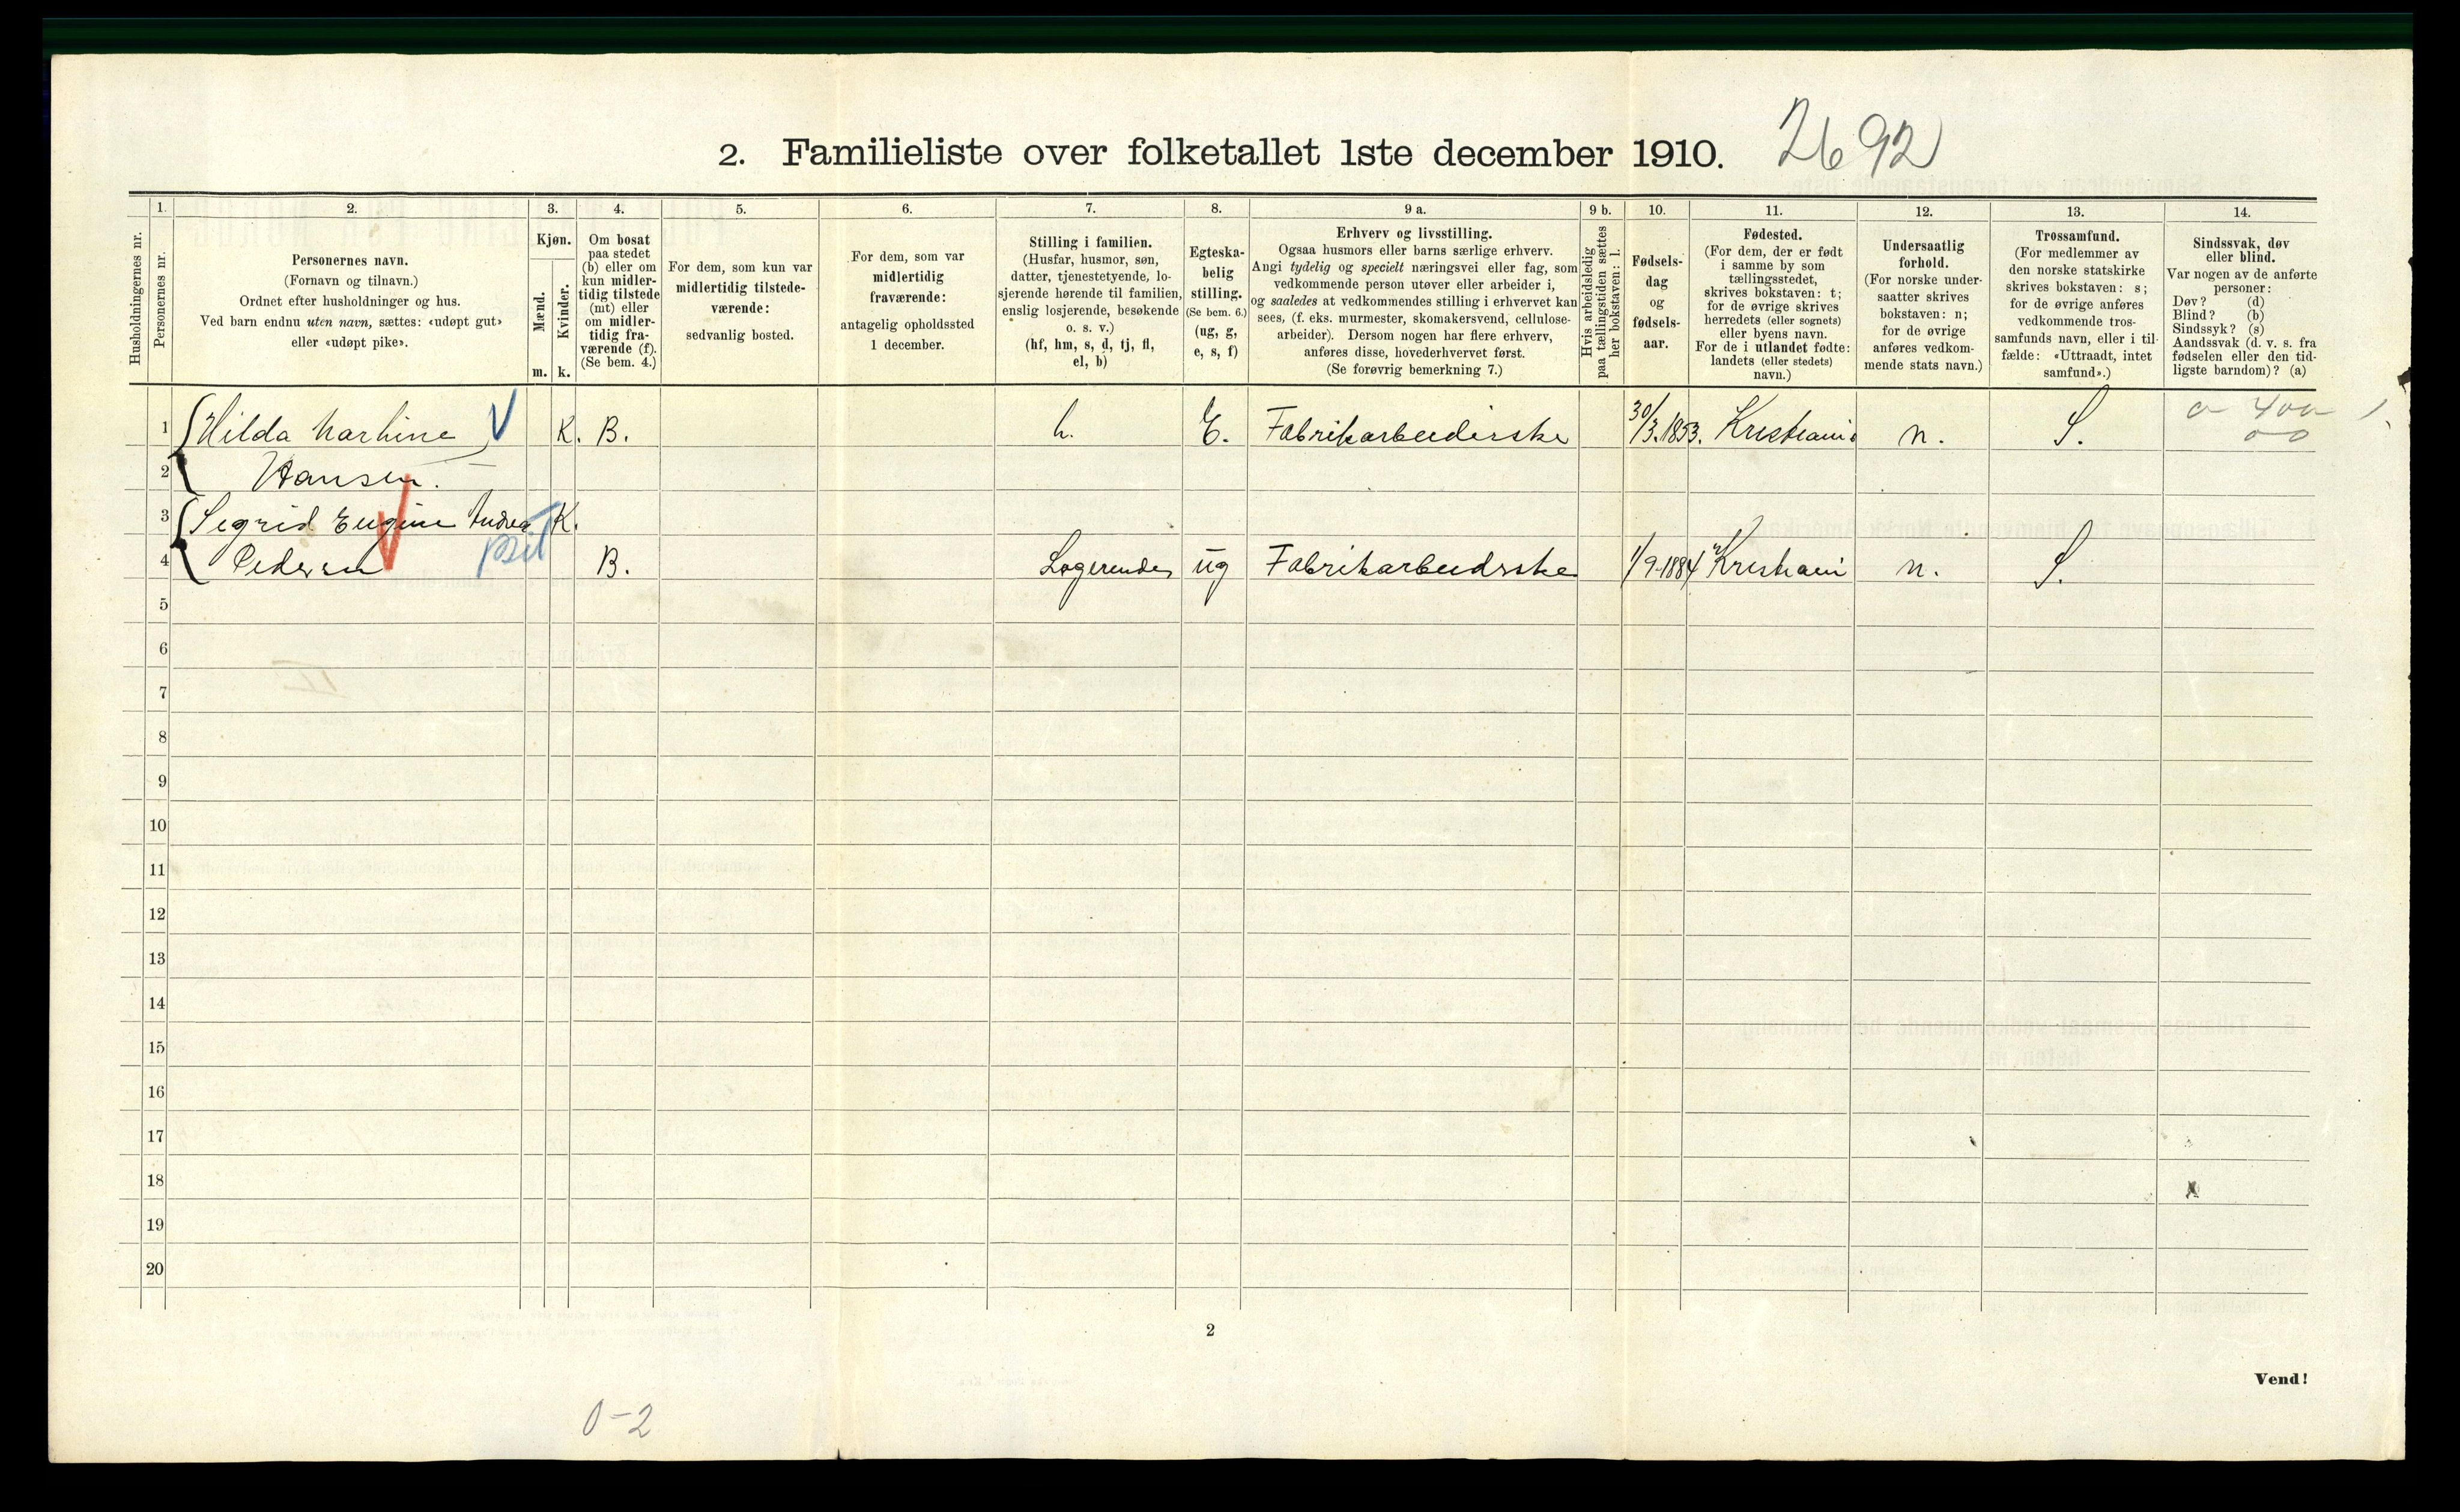 2. Familieliste over folketallet 1ste december 1910. 2692
Husholdningernes nr.
1.
Personernes nr.
2.
Personernes navn.
(Fornavn og tilnavn.)
Ordnet efter husholdninger og hus.
Ved barn endnu uten navn, sættes: «udøpt gut»
eller «udøpt pike».
3.
Kjøn.
Mænd.
Kvinder.
m. k.
4.
Om bosat
paa stedet
(b) eller om
kun midler-
tidig tilstede
(mt) eller
om midler-
tidig fra-
værende (f).
(Se bem. 4.)
5.
For dem, som kun var
midlertidig tilstede-
værende:
sedvanlig bosted.
6.
For dem, som var
midlertidig
fraværende:
antagelig opholdssted
1 december.
7.
Stilling i familien.
(Husfar, husmor, søn,
datter, tjenestetyende, lo-
sjerende hørende til familien,
enslig losjerende, besøkende
o. s. v.)
(hf, hm, s, d, tj, fl,
el, b)
8.
Egteska-
belig
stilling.
(Se bem. 6.)
(ug, g,
e, s, f)
9 a.
Erhverv og livsstilling.
Ogsaa husmors eller barns særlige erhverv.
Angi tydelig og specielt næringsvei eller fag, som
vedkommende person utøver eller arbeider i,
og saaledes at vedkommendes stilling i erhvervet kan
sees, (f. eks. murmester, skomakersvend, cellulose-
arbeider). Dersom nogen har flere erhverv,
anføres disse, hovederhvervet først.
(Se forøvrig bemerkning 7.)
9 b.
Hvis arbeidsledig
paa tællingstiden sættes
her bokstaven: l.
10.
Fødsels-
dag
og
fødsels-
aar.
11.
Fødested.
(For dem, der er født
i samme by som
tællingsstedet,
skrives bokstaven: t;
for de øvrige skrives
herredets (eller sognets)
eller byens navn.
For de i utlandet fødte:
landets (eller stedets)
navn.)
12.
Undersaatlig
forhold.
(For norske under-
saatter skrives
bokstaven: n;
for de øvrige
anføres vedkom-
mende stats navn.)
13.
Trossamfund.
(For medlemmer av
den norske statskirke
skrives bokstaven: s;
for de øvrige anføres
vedkommende tros-
samfunds navn, eller i til-
fælde: «Uttraadt, intet
samfund».)
14.
Sindssvak, døv
eller blind.
Var nogen av de anførte
personer:
Døv? (d)
Blind? (b)
Sindssyk? (s)
Aandssvak (d. v. s. fra
fødselen eller den tid-
ligste barndom)? (a)
1 Hilda Marhine K. B. h. E. Fabrikarbeiderske 30/3.1853. Kristiania n. S.
2 Hansen.
3 Sigrid Eugine Andrea K.
4 Pedersen B. Logerende ug Fabrikarbeidrske 1/9-1884 Kristiani n. S.
5
6
7
8
9
10
11
12
13
14
15
16
17
18
19
20
2
Vend!
0-2